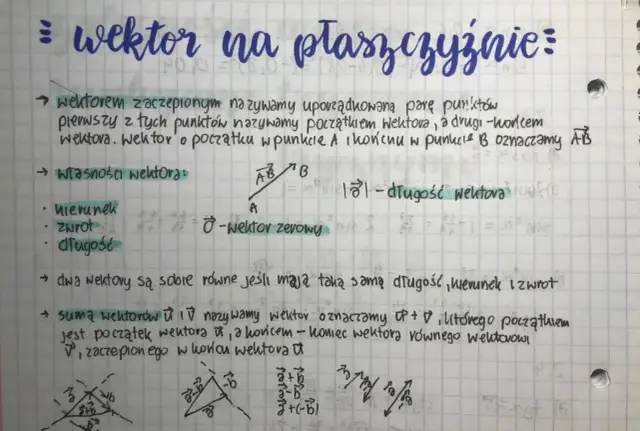 wektor na płaszczyźnie:
→ wektorem zaczepionym nazywamy uporządkowaną parę punktów
pierwszy z tych punktów nazywamy początkiem wektora, a drugi - końcem
wektora. Wektor o początku w punkcie A i końcu w punkcie B oznaczamy A⃗B⃗
→ własności wektora:
• kierunek
• zwrot
• długość
A⃗B⃗
B
A
|a⃗| - długość wektora
0⃗ - wektor zerowy
→ dwa wektory są sobie równe jeśli mają taką samą długość, kierunek i zwrot
→ sumą wektorów u⃗ i v⃗ nazywamy wektor oznaczamy u⃗ + v⃗, którego początkiem
jest początek wektora u⃗, a końcem - koniec wektora równego wektorowi
v⃗, zaczepionego w końcu wektora u⃗
a⃗
a⃗+b⃗
b⃗
a⃗-b⃗
-b⃗
a⃗
a⃗+b⃗
a⃗-b⃗
a⃗+(-b⃗)